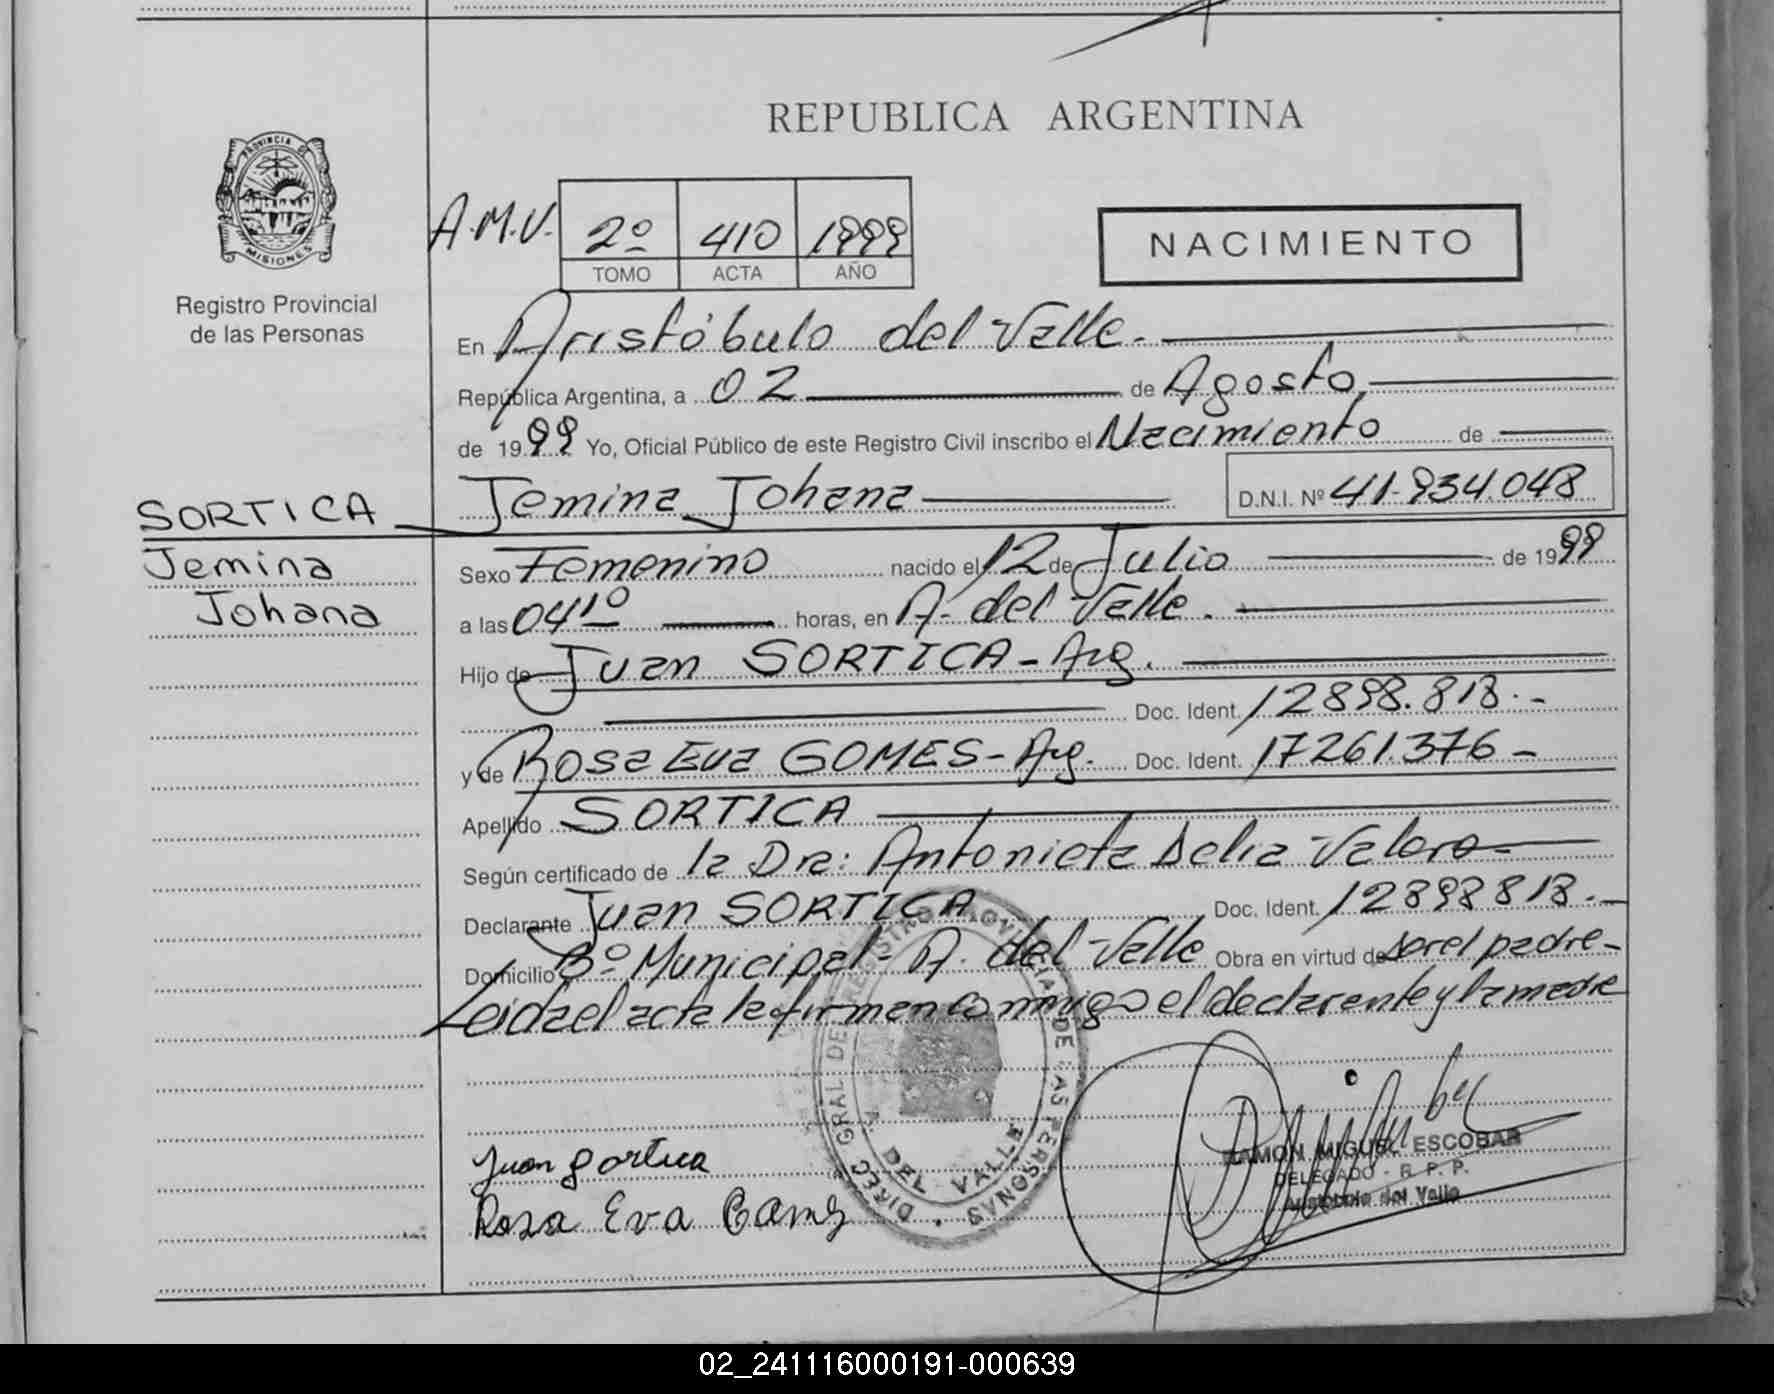 REPUBLICA ARGENTINA
PROVINCIA DE
MISIONES
Registro Provincial
de las Personas
A.M.V. 2º 410 1999
TOMO ACTA AÑO
NACIMIENTO
En Aristóbulo del Valle.
República Argentina, a 02 de Agosto
de 1999 Yo, Oficial Público de este Registro Civil inscribo el Nacimiento de
SORTICA
Jemina Johana
Jemina Johana D.N.I. Nº 41.934.048
Sexo Femenino nacido el 12 de Julio de 1999
a las 04 10 horas, en A. del Valle.
Hijo de Juan SORTICA - Arg.
Doc. Ident. 12898.818.-
y de Rosa Eva GOMES - Arg. Doc. Ident. 17261.376-
Apellido SORTICA
Según certificado de la Dra: Antonieta Delia Valero-
Declarante Juan SORTICA Doc. Ident. 12898818.-
Domicilio Bº Municipal- A. del Valle Obra en virtud de ser el padre-
Leida el acta la firman conmigo el declarante y la madre
DIREC. GRAL DEL REGISTRO PROVINCIAL DE LAS PERSONAS
DEL VALLE
Juan Sortica
Rosa Eva
RAMON MIGUEL ESCOBAR
DELEGADO - R. P. P.
Aristóbulo del Valle
02_241116000191-000639